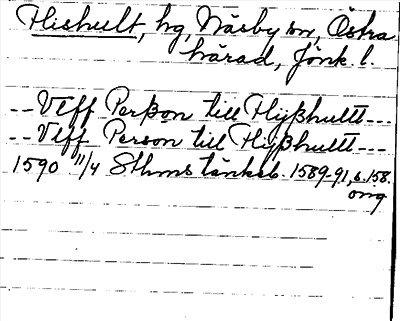 Hishult, hg, Näsby sn, Östra
härad, Jönk. l.
-- Vlff Perßon till Hÿßhultt ---
-- Vlff Person till Hÿßhultt ---
1590 11/4 Sthms tänkeb. 1589-91, s. 158.
orig